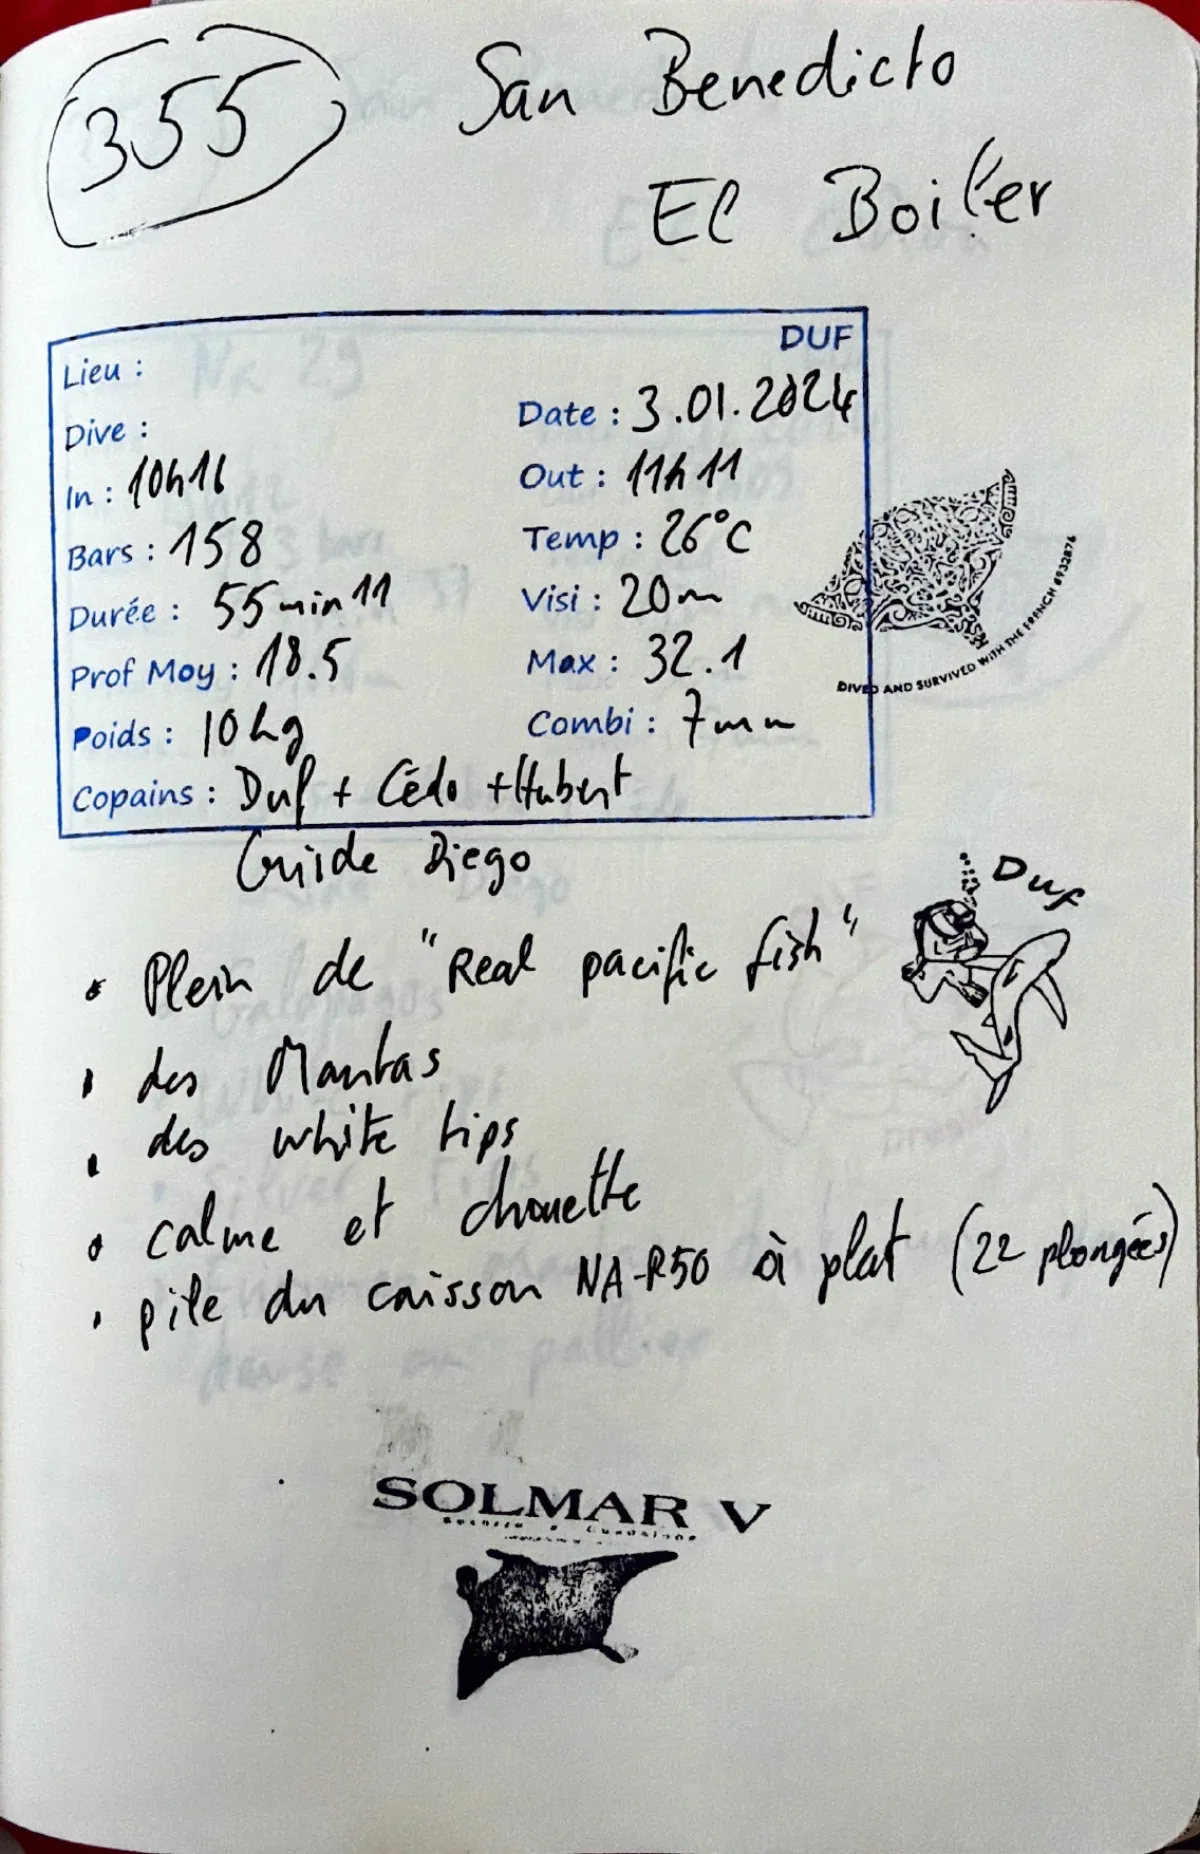 355
San Benedicto
El Boiler
DUF
Lieu :
Dive :
Date : 3.01.2024
In : 10h16
Out : 11h11
Bars : 158
Temp : 26°C
Durée : 55min11
Visi : 20m
Prof Moy : 18.5
Max : 32.1
Poids : 10kg
Combi : 7mm
Copains : Duf + Cédo + Hubert
Guide Diego
DIVED AND SURVIVED WITH THE FRENCH
Duf
• Plein de "Real pacific fish"
• des Mantas
• des white tips
• calme et chouette
• pile du caisson NA-R50 à plat (22 plongées)
SOLMAR V